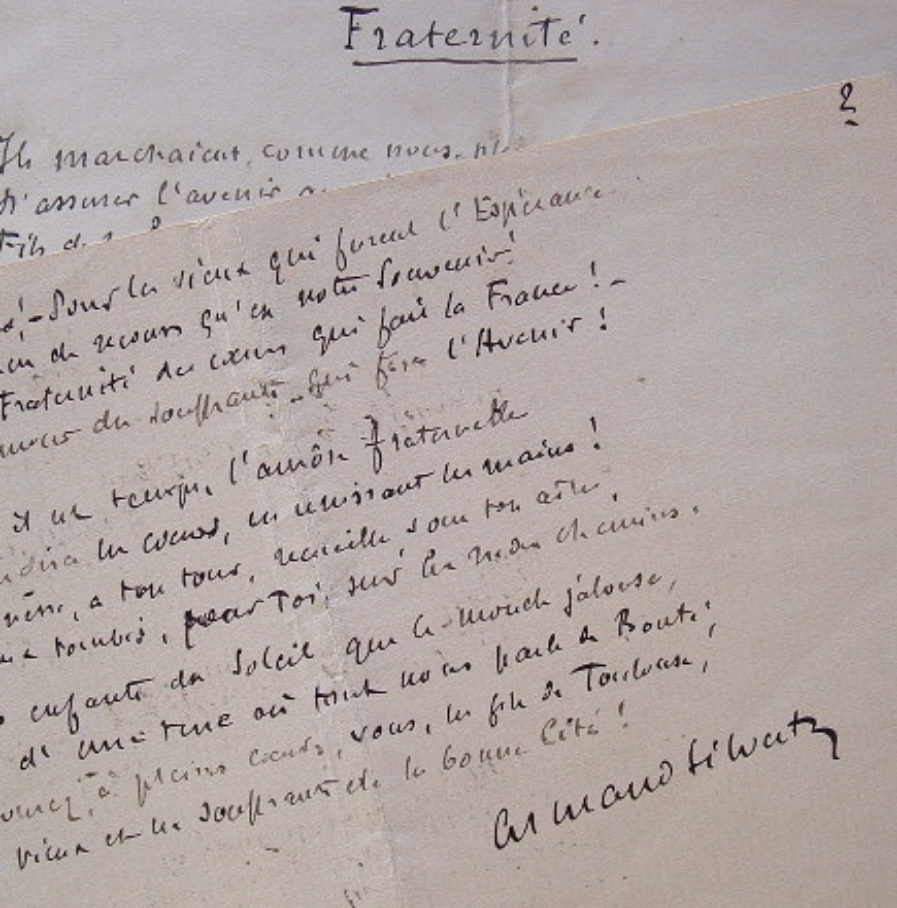 Fraternité.
Ils marchaient, comme nous,
d'assurer l'avenir
Fils de
2
Pour les vieux qui furent l'Espérance
de recours qu'en notre Souvenir!
Fraternité des cœurs qui fait la France! -
des souffrants - qui fera l'Avenir!
il est temps, l'aumône fraternelle
les cœurs, en unissant les mains!
à ton tour, recueille sous ton aile,
tombés, pour Toi, sur les rudes chemins.
enfants du Soleil que le monde jalouse,
d'une terre où tout nous parle de Bonté,
à pleins cœurs, vous, les fils de Toulouse,
vieux et les souffrants de la bonne Cité!
Armand Silvestre